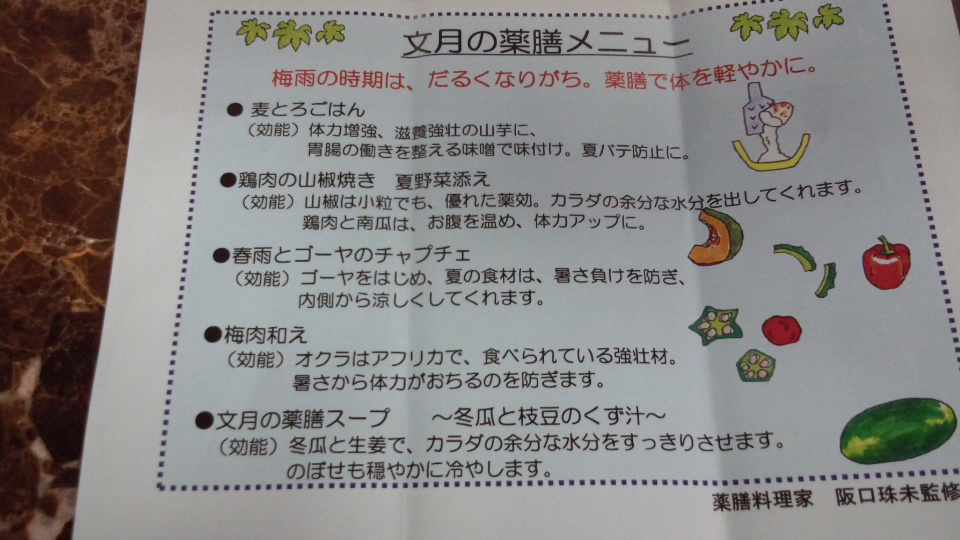 文月の薬膳メニュー
梅雨の時期は、だるくなりがち。薬膳で体を軽やかに。
● 麦とろごはん
（効能）体力増強、滋養強壮の山芋に、
胃腸の働きを整える味噌で味付け。夏バテ防止に。
●鶏肉の山椒焼き　夏野菜添え
（効能）山椒は小粒でも、優れた薬効。カラダの余分な水分を出してくれます。
鶏肉と南瓜は、お腹を温め、体力アップに。
●春雨とゴーヤのチャプチェ
（効能）ゴーヤをはじめ、夏の食材は、暑さ負けを防ぎ、
内側から涼しくしてくれます。
●梅肉和え
（効能）オクラはアフリカで、食べられている強壮材。
暑さから体力がおちるのを防ぎます。
●文月の薬膳スープ　～冬瓜と枝豆のくず汁～
（効能）冬瓜と生姜で、カラダの余分な水分をすっきりさせます。
のぼせも穏やかに冷やします。
薬膳料理家　阪口珠未監修